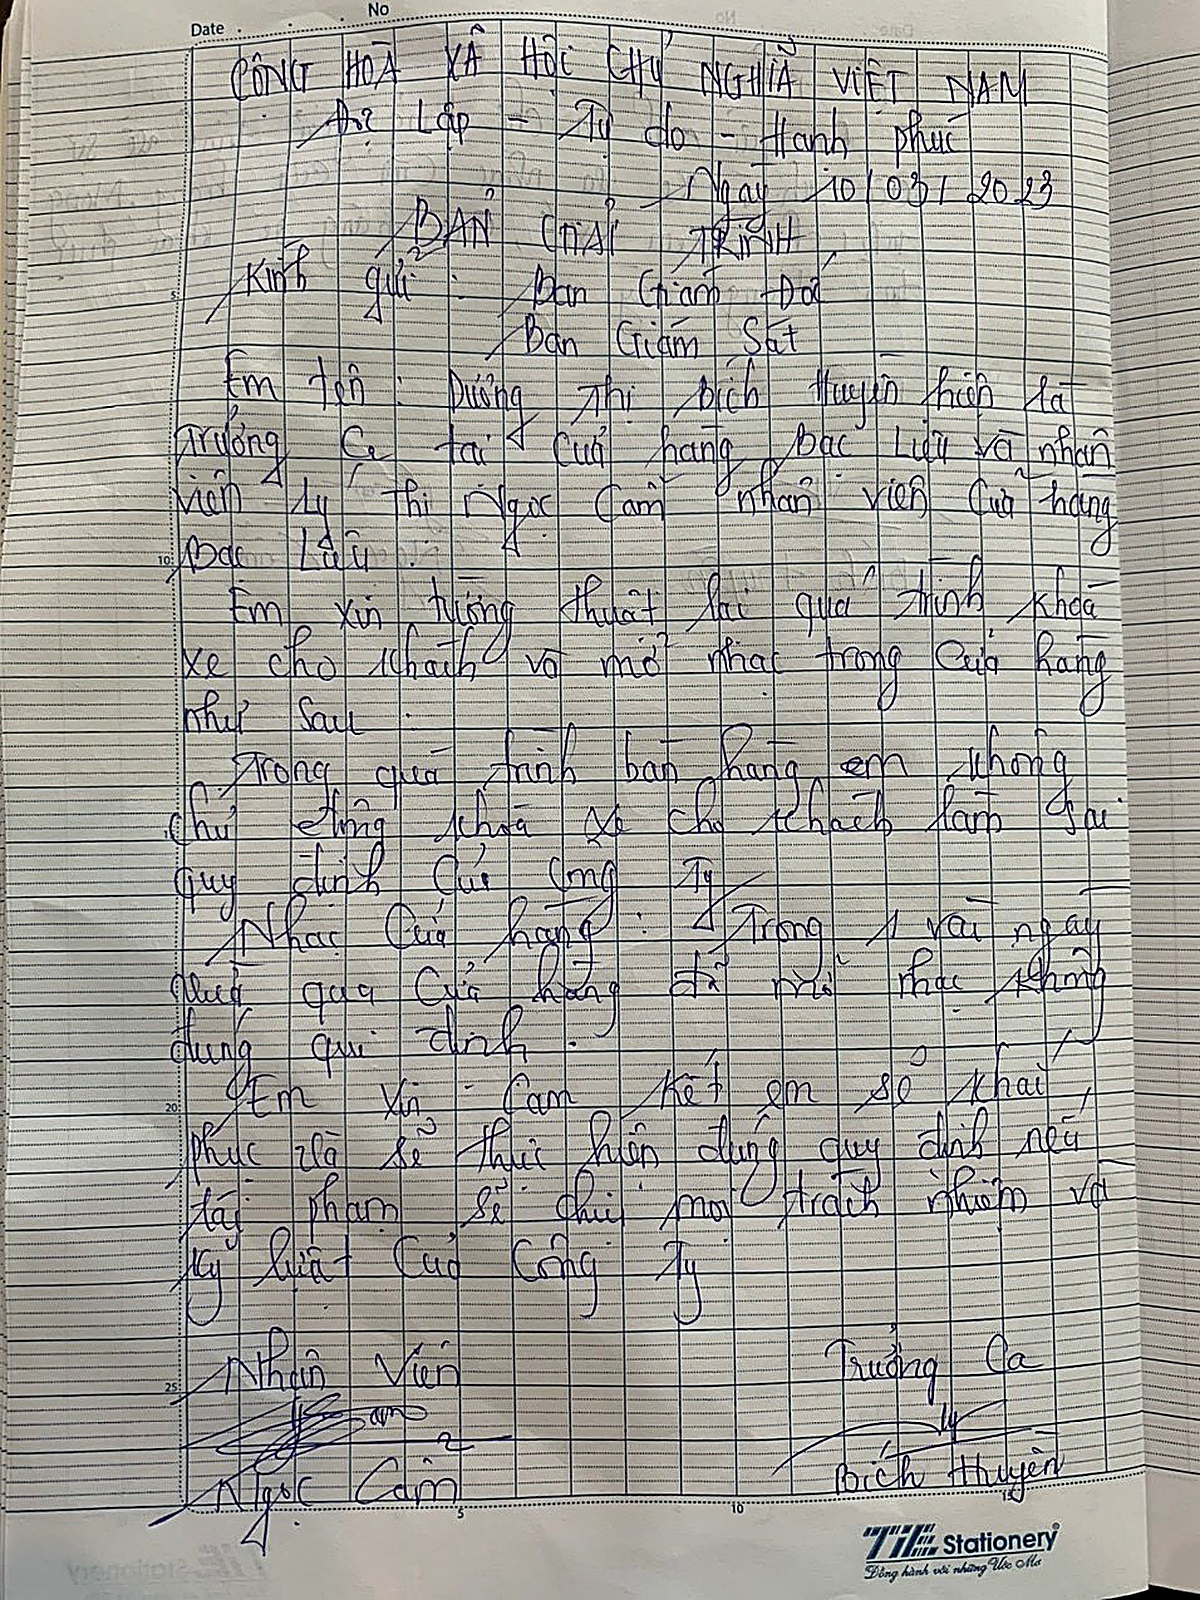 No
Date
CỘNG HOÀ XÃ HỘI CHỦ NGHĨA VIỆT NAM
Độc Lập - Tự do - Hạnh phúc
Ngày 10/03/2023
BẢN GIẢI TRÌNH
Kính gửi : Ban Giám Đố
Ban Giám Sát
Em tên : Dương Thị Bích Huyền hiện là
Trưởng Ca tại cửa hàng Bạc Liêu và nhân
viên Lý Thị Ngọc Cẩm nhân viên cửa hàng
5
10
Bạc Liêu .
Em xin tường thuật lại quá trình khoá
xe cho khách và mở nhạc trong cửa hàng
như sau :
Trong quá trình bán hàng em không
chủ động khoá xe cho khách làm sai
quy định của công Ty
Nhạc cửa hàng : Trong 1 vài ngày
qua cửa hàng đã mở nhạc không
đúng qui định .
Em xin cam kết em sẽ khắc
20
phục và sẽ thực hiện đúng quy định nếu
tái phạm sẽ chịu mọi trách nhiệm với
kỷ luật của Công Ty
Nhân Viên Trưởng Ca
25
Ngọc Cẩm Bích Huyền
5 10 15
TiE Stationery
Đồng hành với những Ước Mơ